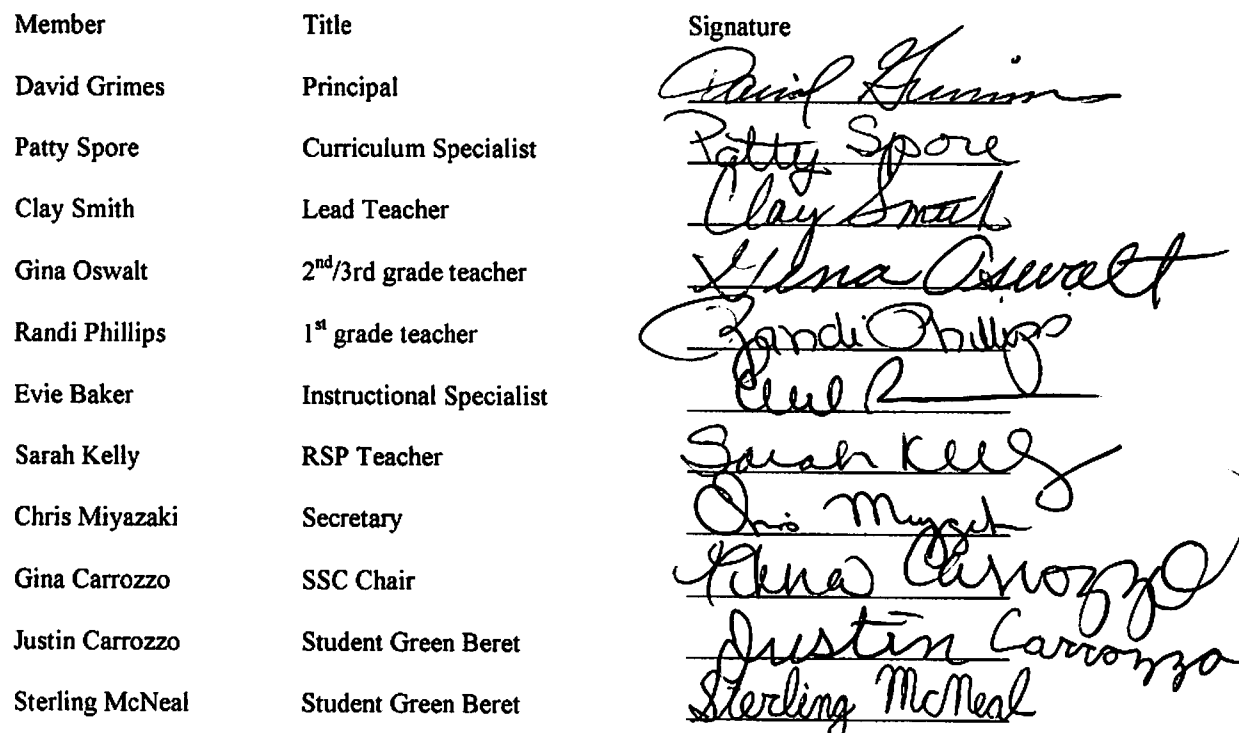 Member Title Signature
David Grimes Principal David Grimes
Patty Spore Curriculum Specialist Patty Spore
Clay Smith Lead Teacher Clay Smith
Gina Oswalt 2nd/3rd grade teacher Gina Oswalt
Randi Phillips 1st grade teacher Randi Phillips
Evie Baker Instructional Specialist
Sarah Kelly RSP Teacher Sarah Kelly
Chris Miyazaki Secretary Chris
Gina Carrozzo SSC Chair Gina Carrozzo
Justin Carrozzo Student Green Beret Justin Carrozzo
Sterling McNeal Student Green Beret Sterling McNeal